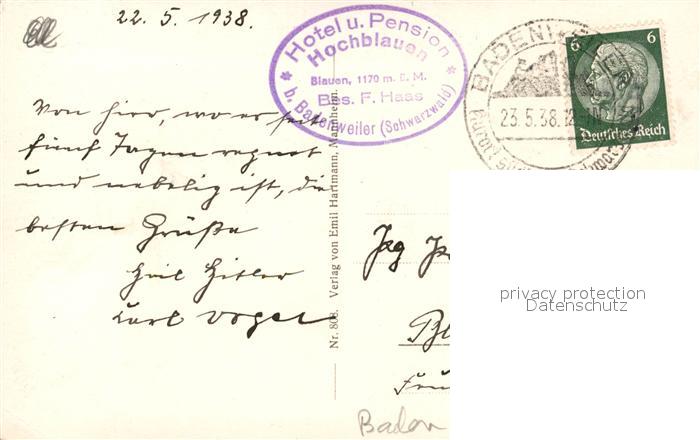 22. 5. 1938.
Von hier, wo es seit
fünf Tagen regnet
und nebelig ist, die
besten Grüße
Heil Hitler
Karl Vogel
Hotel u. Pension
Hochblauen
Blauen, 1170 m. ü. M.
Bes. F. Haas
b. Badenweiler (Schwarzwald)
Nr. 808. Verlag von Emil Hartmann, Mannheim.
BADENWEILER
23.5.38.12
6 6
Deutsches Reich
privacy protection
Datenschutz
Baden